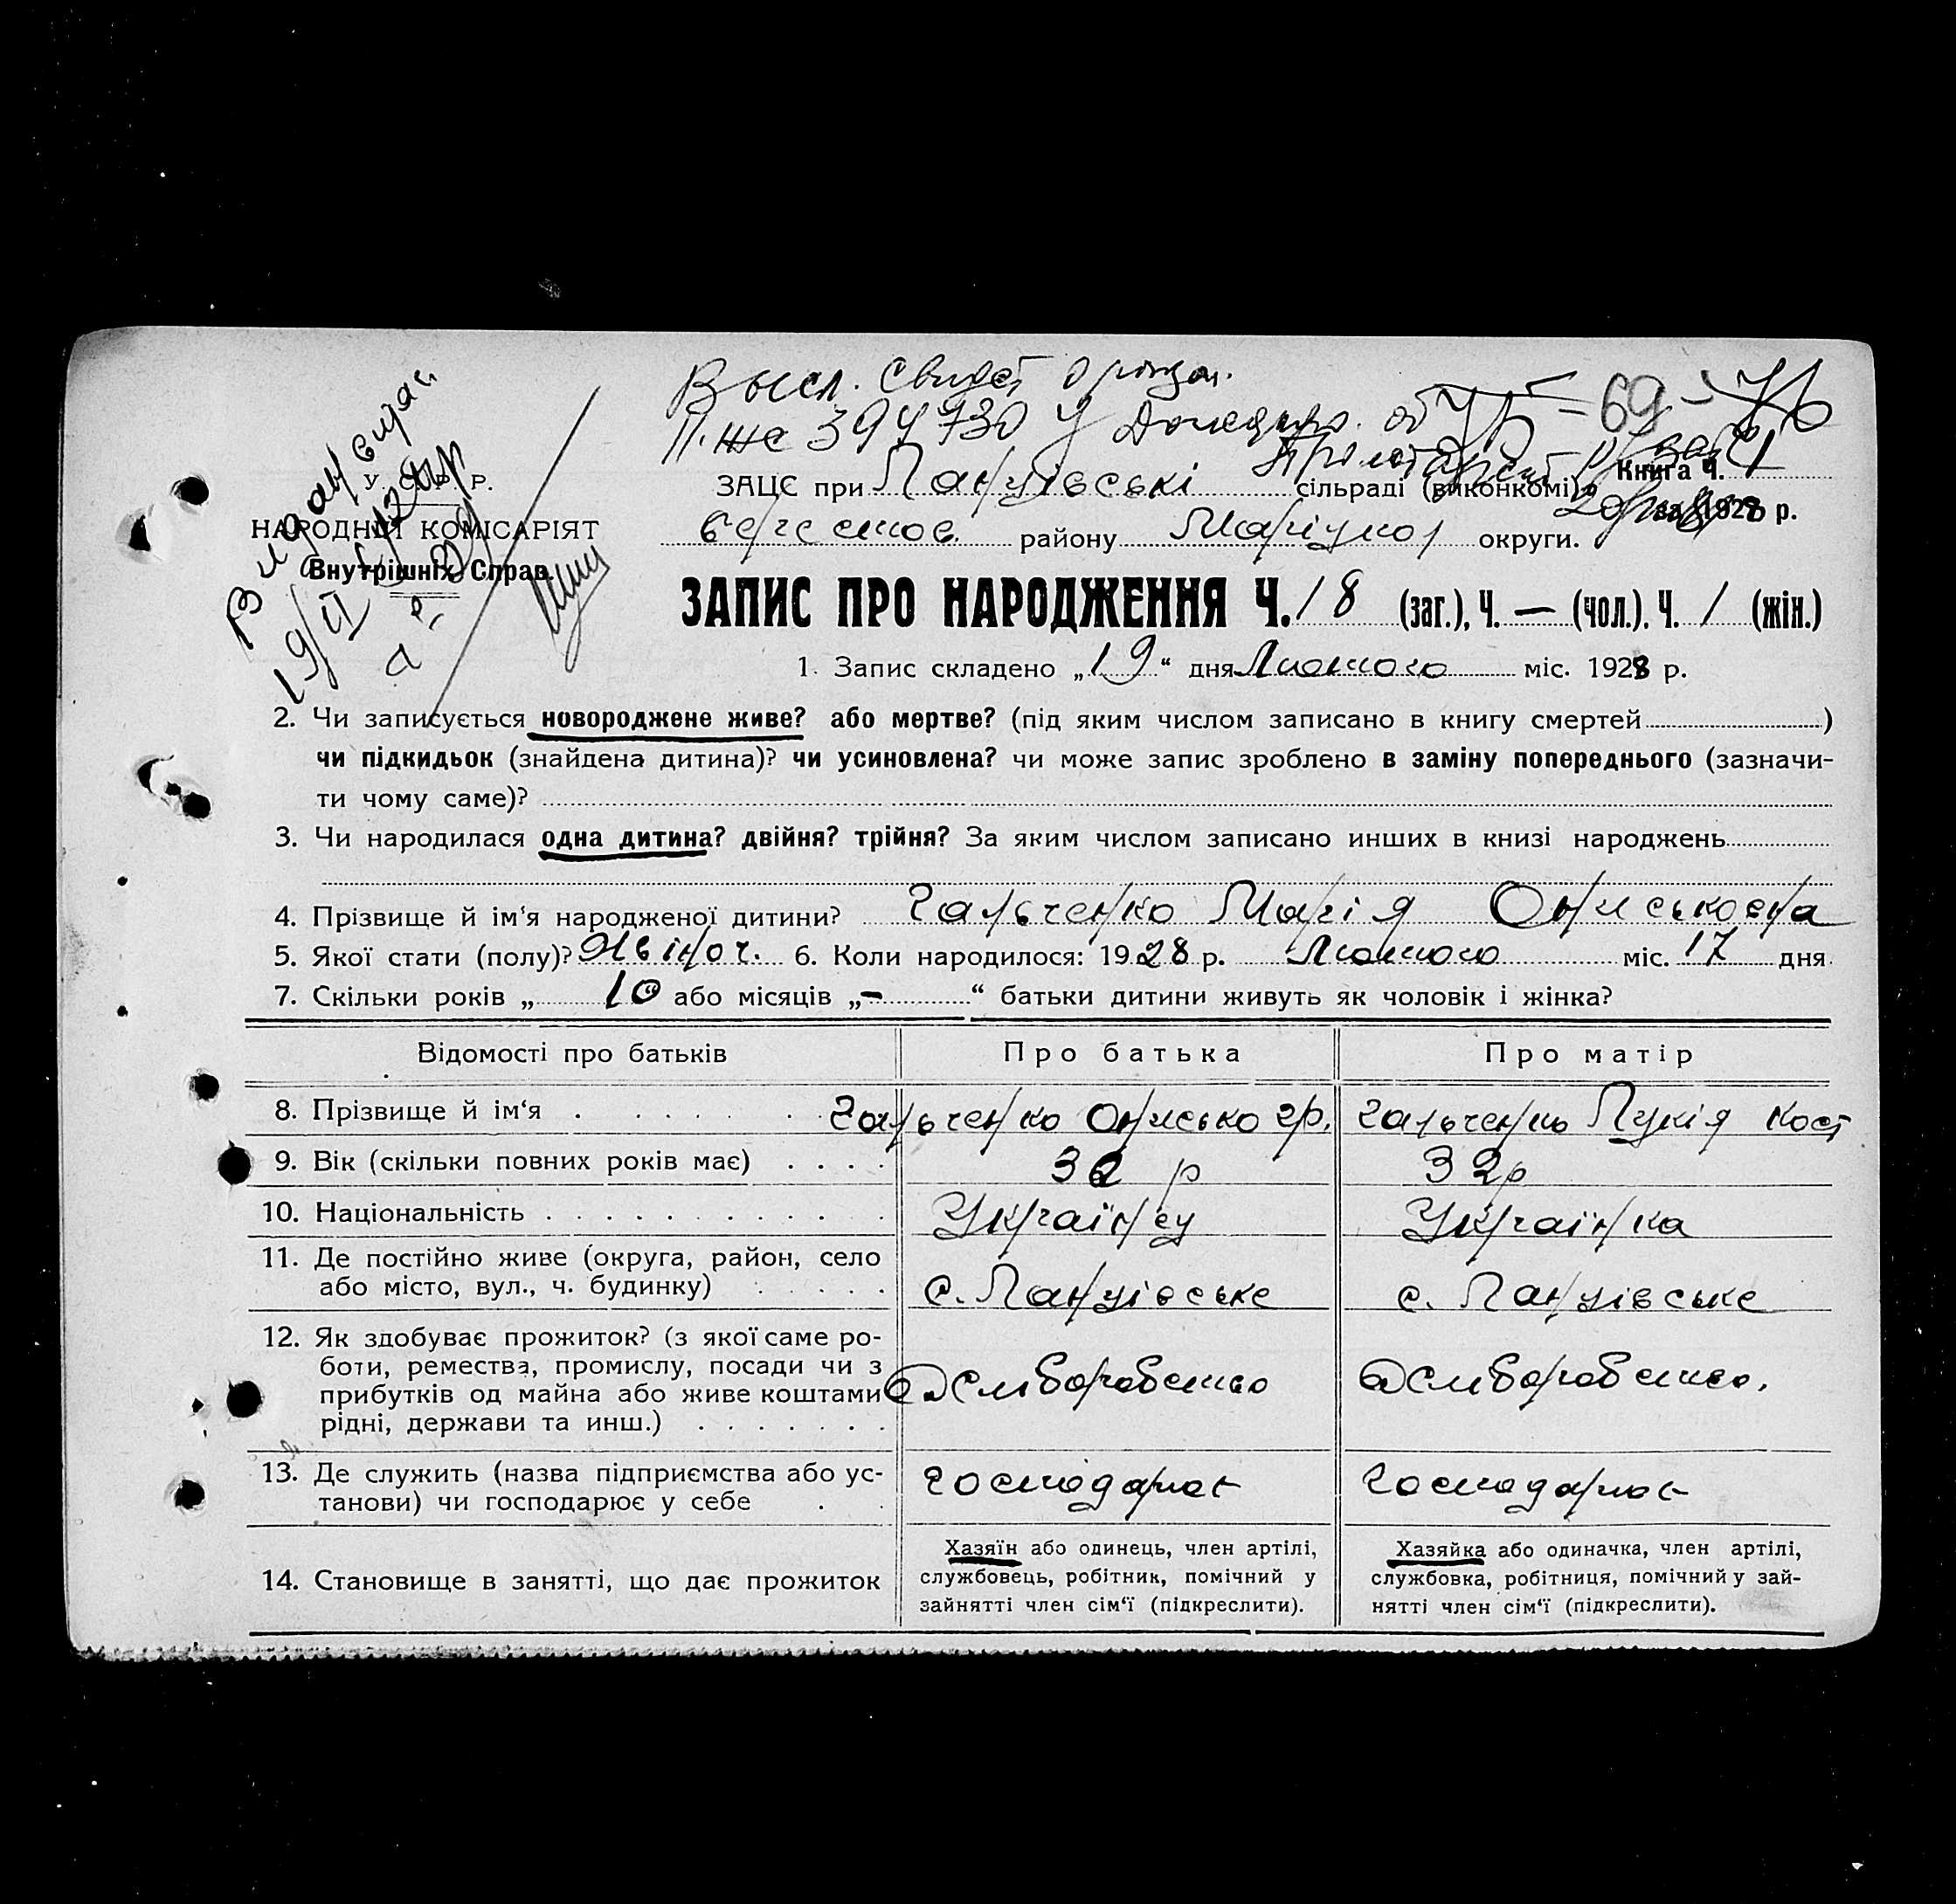 Высл. свидет о рожд.
394730
69 - 76
Видан витяг
19/II
У. С. Р. Р.
НАРОДНІЙ КОМІСАРІЯТ
Внутрішніх Справ.
ЗАЦС при Ланцівські сільраді (виконкомі) Книга Ч. 1
берестов. району Маріупол округи. за 1928 р.
ЗАПИС ПРО НАРОДЖЕННЯ Ч. 18 (заг.), Ч. — (чол.), Ч. 1 (жін.)
1. Запис складено „19“ дня Лютого міс. 1928 р.
2. Чи записується новороджене живе? або мертве? (під яким числом записано в книгу смертей )
чи підкидьок (знайдена дитина)? чи усиновлена? чи може запис зроблено в заміну попереднього (зазначи-
ти чому саме)?
3. Чи народилася одна дитина? двійня? трійня? За яким числом записано инших в книзі народжень
4. Прізвище й ім‘я народженої дитини? Гальченко Марія Ониськовна
5. Якої стати (полу)? Жіноч. 6. Коли народилося: 1928 р. Лютого міс. 17 дня
7. Скільки років „ 10 або місяців „-“ батьки дитини живуть як чоловік і жінка?
Відомості про батьків Про батька Про матір
8. Прізвище й ім‘я Гальченко Онисько гр. Гальченко Лукія Кост
9. Вік (скільки повних років має) 32 р 32 р
10. Національність Українец Українка
11. Де постійно живе (округа, район, село
або місто, вул., ч. будинку) с. Ланцівське с. Ланцівське
12. Як здобуває прожиток? (з якої саме ро-
боти, ремества, промислу, посади чи з
прибутків од майна або живе коштами
рідні, держави та инш.)
13. Де служить (назва підприємства або ус-
танови) чи господарює у себе господарює господарює
14. Становище в занятті, що дає прожиток
Хазяїн або одинець, член артілі,
службовець, робітник, помічний у
зайнятті член сім‘ї (підкреслити).
Хазяйка або одиначка, член артілі,
службовка, робітниця, помічний у зай-
нятті член сім‘ї (підкреслити).